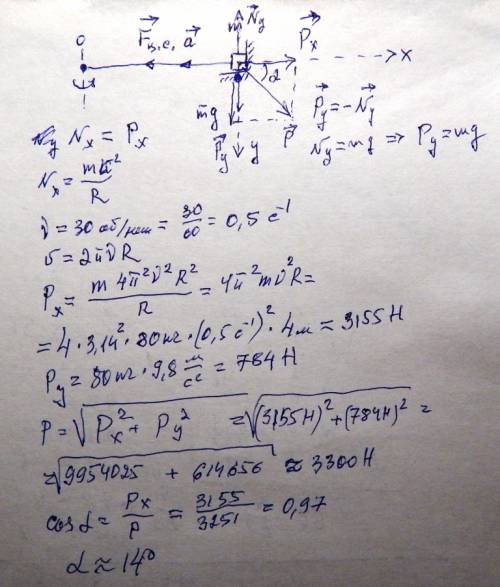 O F⃗ц.с. a⃗ N⃗y P⃗x
α x
m⃗g P⃗y y P⃗ P⃗y = -N⃗y
Ny = mg ⇒ Py = mg
Nx = Px
Nx = mv²/R
ν = 30 об/мин = 30/60 = 0,5 c⁻¹
v = 2πνR
Px = m4π²ν²R²/R = 4π²mν²R =
= 4 · 3,14² · 80кг · (0,5 c⁻¹)² · 4м ≈ 3155 Н
Py = 80кг · 9,8 м/c² = 784 Н
P = √(Px² + Py²) = √((3155Н)² + (784Н)²) =
= √(9954025 + 614656) ≈ 3300 Н
cos α = Px/P = 3155/3251 = 0,97
α ≈ 14°